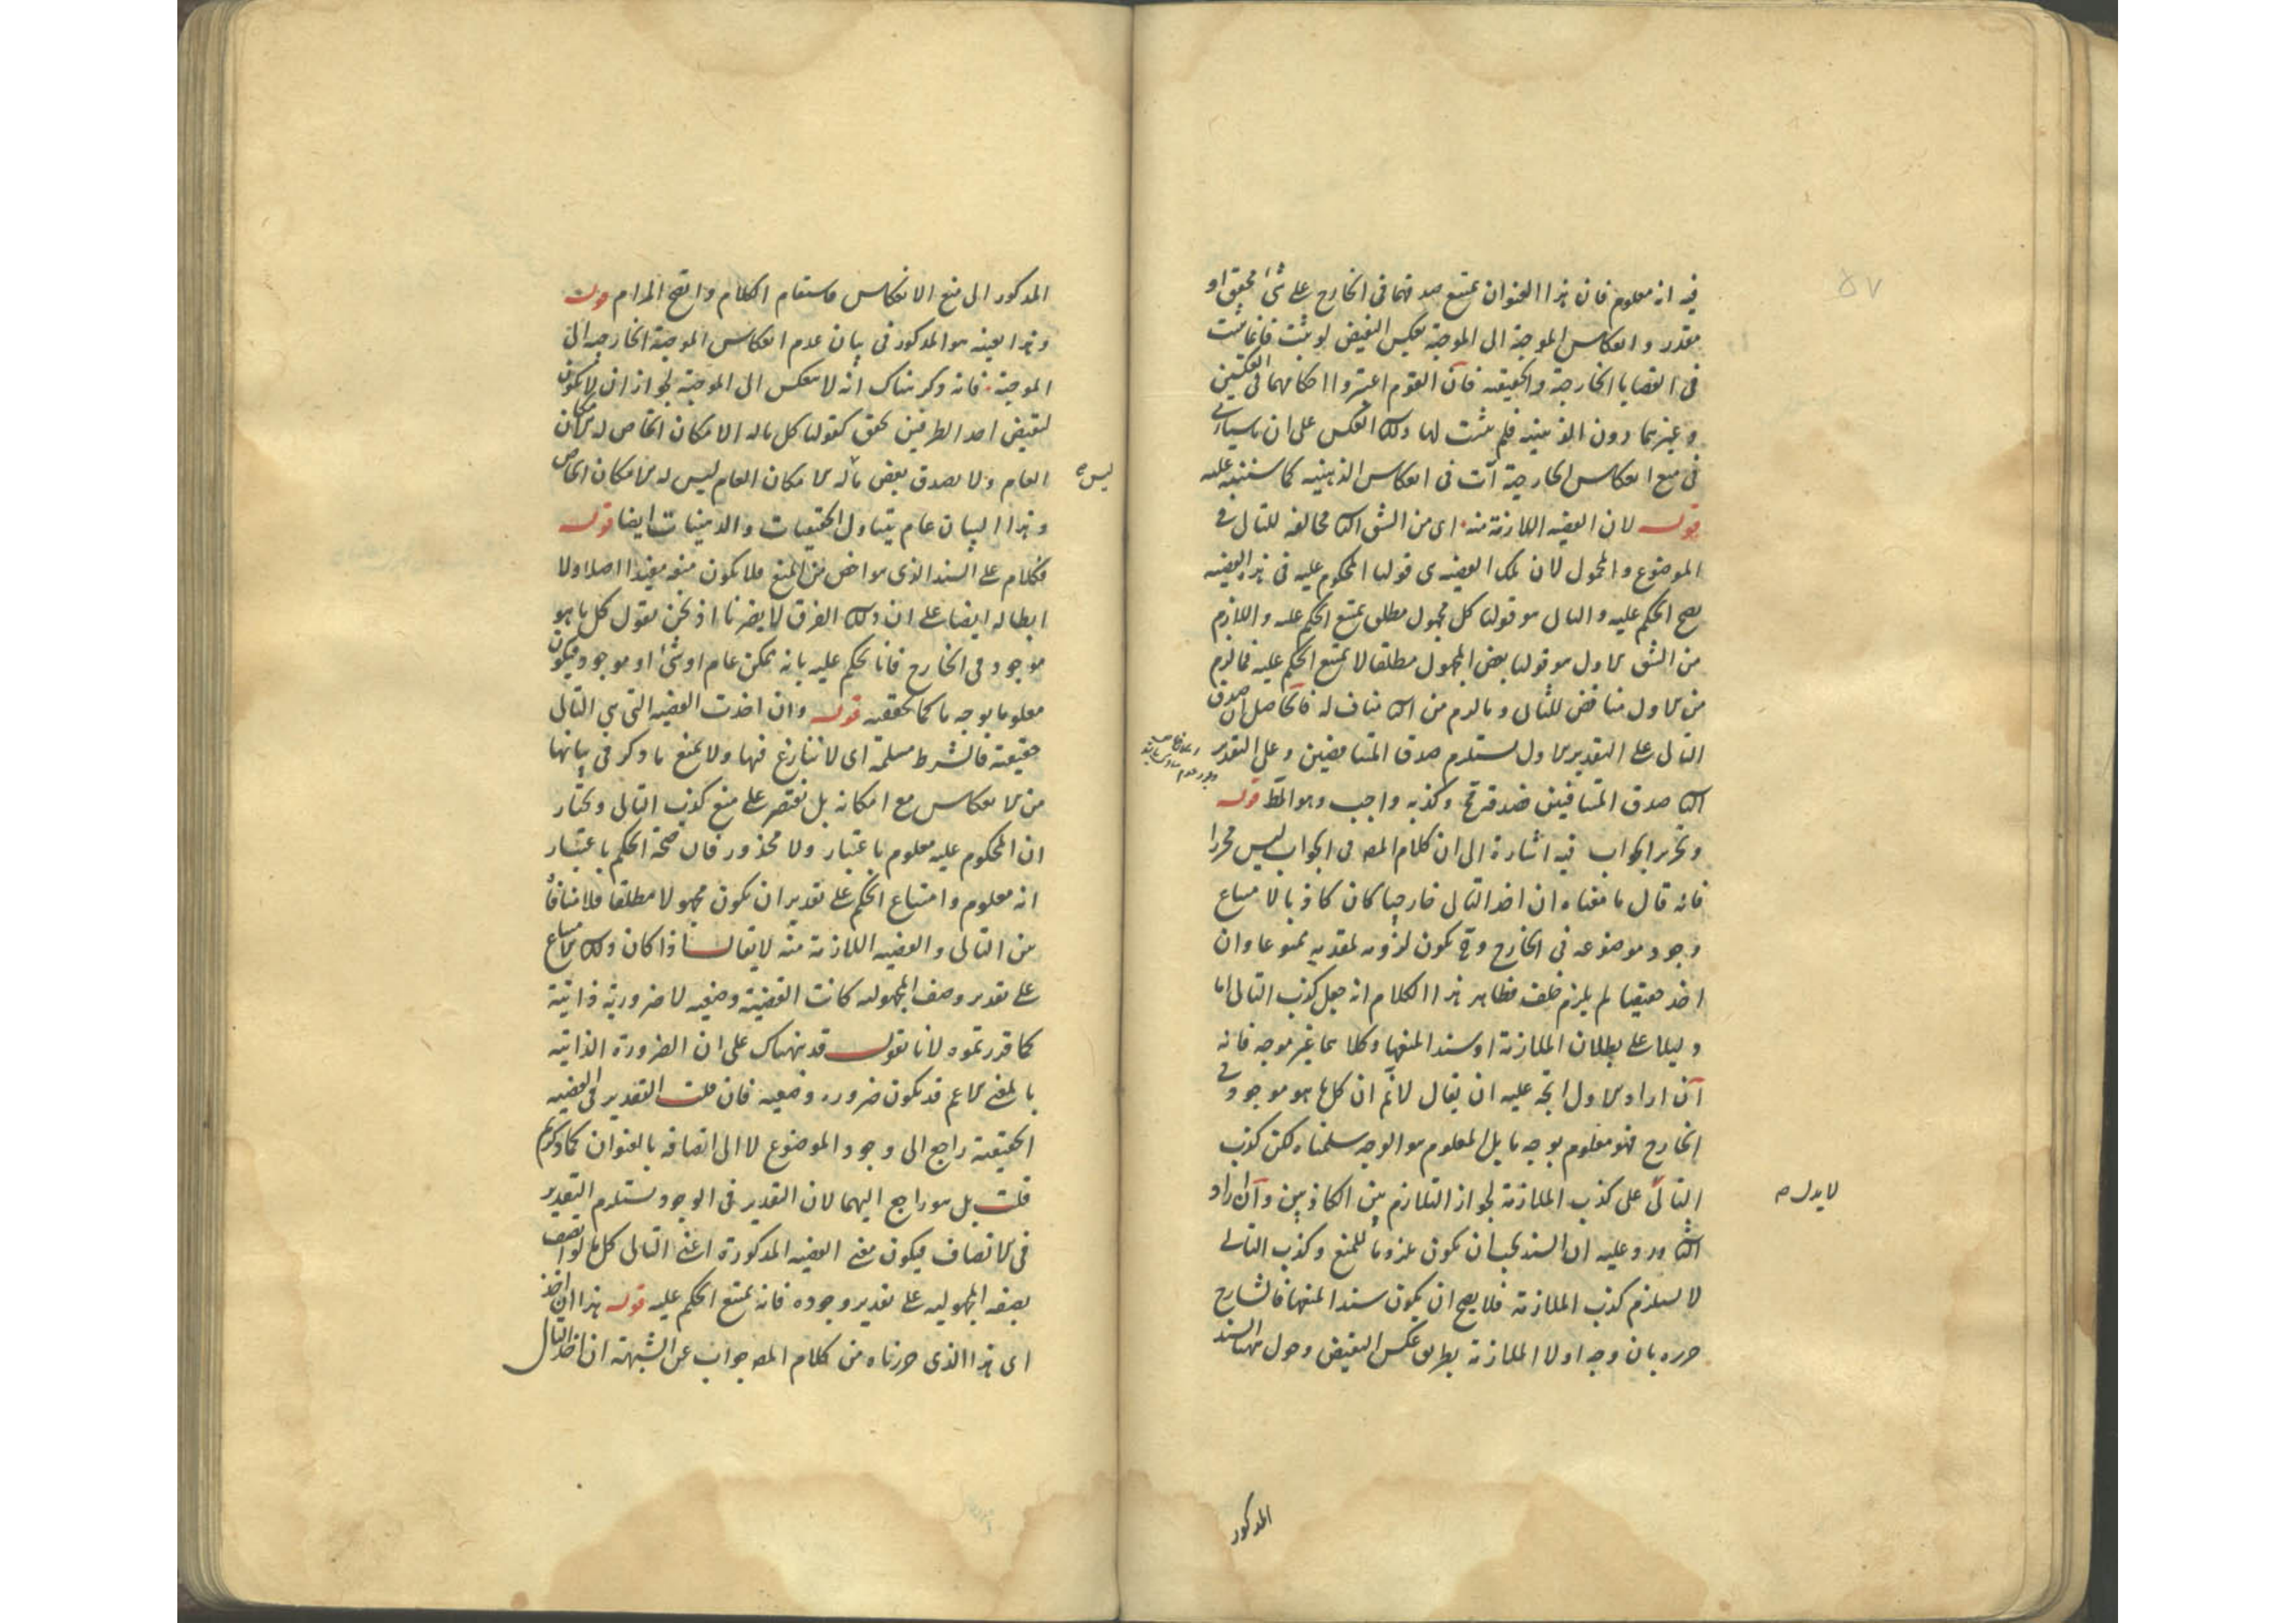 فيه انه معلوم فان هذا العنوان يمتنع صدقهما فى الخارج على شئ محقق او
مقدر وانعكاس الموجبة الى الموجبة بعكس النقيض لو يثبت فانما يثبت
فى القضايا الخارجية والحقيقيه فان القوم اعتبروا احكامهما فى العكسين
وغيرهما دون الذهنيه فلم يثبت لها ذلك العكس على ان ما سيأتى
فى منع انعكاس الخارجية آت فى انعكاس الذهنيه كما ستنبه عليه
قوله لان القضيه اللازمة منه اى من الشق الثا مخالفه للتالى فى
الموضوع والمحمول لان تلك القضيه هى قولنا المحكوم عليه فى هذه القضيه
يصح الحكم عليه والتالى هو قولنا كل مجهول مطلق يمتنع الحكم عليه واللازم
من الشق الاول هو قولنا بعض المجهول مطلقا لا يمتنع الحكم عليه فما لزم
من الاول مناقض للتالى وما لزم من الثا مناف له فالحاصل ان صدق
التالى على التقدير الاول يستلزم صدق المتناقضين وعلى التقدير
الثا صدق المتنافيين فصدقه مح وكذبه واجب وهو المط قوله
وتحرير الجواب فيه اشارة الى ان كلام المص فى الجواب ليس محررا
فانه قال ما معناه ان اخذ التالى خارجيا كان كاذبا لامتناع
وجود موضوعه فى الخارج وح يكون لزومه لمقدمه ممنوعا وان
اخذ حقيقيا لم يلزم خلف فظاهر هذا الكلام انه جعل كذب التالى اما
دليلا على بطلان الملازمة او سندا لمنعها وكلاهما غير موجه فانه
ان اراد الاول اتجه عليه ان يقال لانم ان كل ما هو موجود فى
الخارج فهو معلوم بوجه ما بل المعلوم هو الوجه سلمناه لكن كذب
التالى على كذب الملازمة لجواز التلازم بين الكاذبين وان اراد
لا يدل صح
الثا ورد عليه ان السند يجب ان يكون ملزوما للمنع وكذب التالى
لا يستلزم كذب الملازمة فلا يصح ان يكون سندا لمنعها فالشارح
حرره بان وجه اولا الملازمة بطريق عكس النقيض وحول مهنا السند
المذكور
المذكور الى منع الانعكاس فاستقام الكلام واتضح المرام قوله
وهذا بعينه هو المذكور فى بيان عدم انعكاس الموجبة الخارجيه الى
الموجبة فانه ذكر هناك انه لا تنعكس الى الموجبة لجواز ان لا يكون
لنقيض احد الطرفين تحقق كقولنا كل ما له الامكان الخاص له الامكان
العام ولا يصدق بعض ما له الامكان العام ليس له الامكان الخاص
ليس صح
وهذا البيان عام يتناول الحقيقيات والذهنيات ايضا قوله
فكلام على السند الذى هو اخص من المنع فلا يكون منعه مفيدا اصلا ولا
ابطاله ايضا على ان ذلك الفرق لا يضرنا اذ نحن نقول كل ما هو
موجود فى الخارج فانا نحكم عليه بانه ممكن عام او شئ او موجود فيكون
معلوما بوجه ما كما تحققته قوله وان اخذت القضيه التى هى التالى
حقيقية فالشرط مسلمة اى لا ننازع فيها ولا نمنع ما ذكر فى بيانها
من الانعكاس مع امكانه بل نقتصر على منع كذب التالى ونختار
ان المحكوم عليه معلوم باعتبار ولا محذور فان صحة الحكم باعتبار
انه معلوم وامتناع الحكم على تقدير ان يكون مجهولا مطلقا فلا منافاة
من التالى والقضيه اللازمة منه لا يقال اذا كان ذلك الامتناع
على تقدير وصف المجهوليه كانت القضية وضعيه لا ضرورية ذاتية
كما قررتموه لانا نقول قد نبهناك على ان الضرورة الذاتيه
بالمعنى الاعم قد تكون ضرورة وضعيه فان قلت التقدير فى القضيه
الحقيقية راجع الى وجود الموضوع لا الى اتصافه بالعنوان كما ذكرتم
قلت بل هو راجع اليهما لان التقدير فى الوجود يستلزم التقدير
فى الاتصاف فيكون معنى القضيه المذكورة اعنى التالى كل ما لو اتصف
بصفة المجهوليه على تقدير وجوده فانه يمتنع الحكم عليه قوله هذا ان اخذ
اى هذا الذى حررناه من كلام المص جواب عن الشبهة ان اخذ التالى